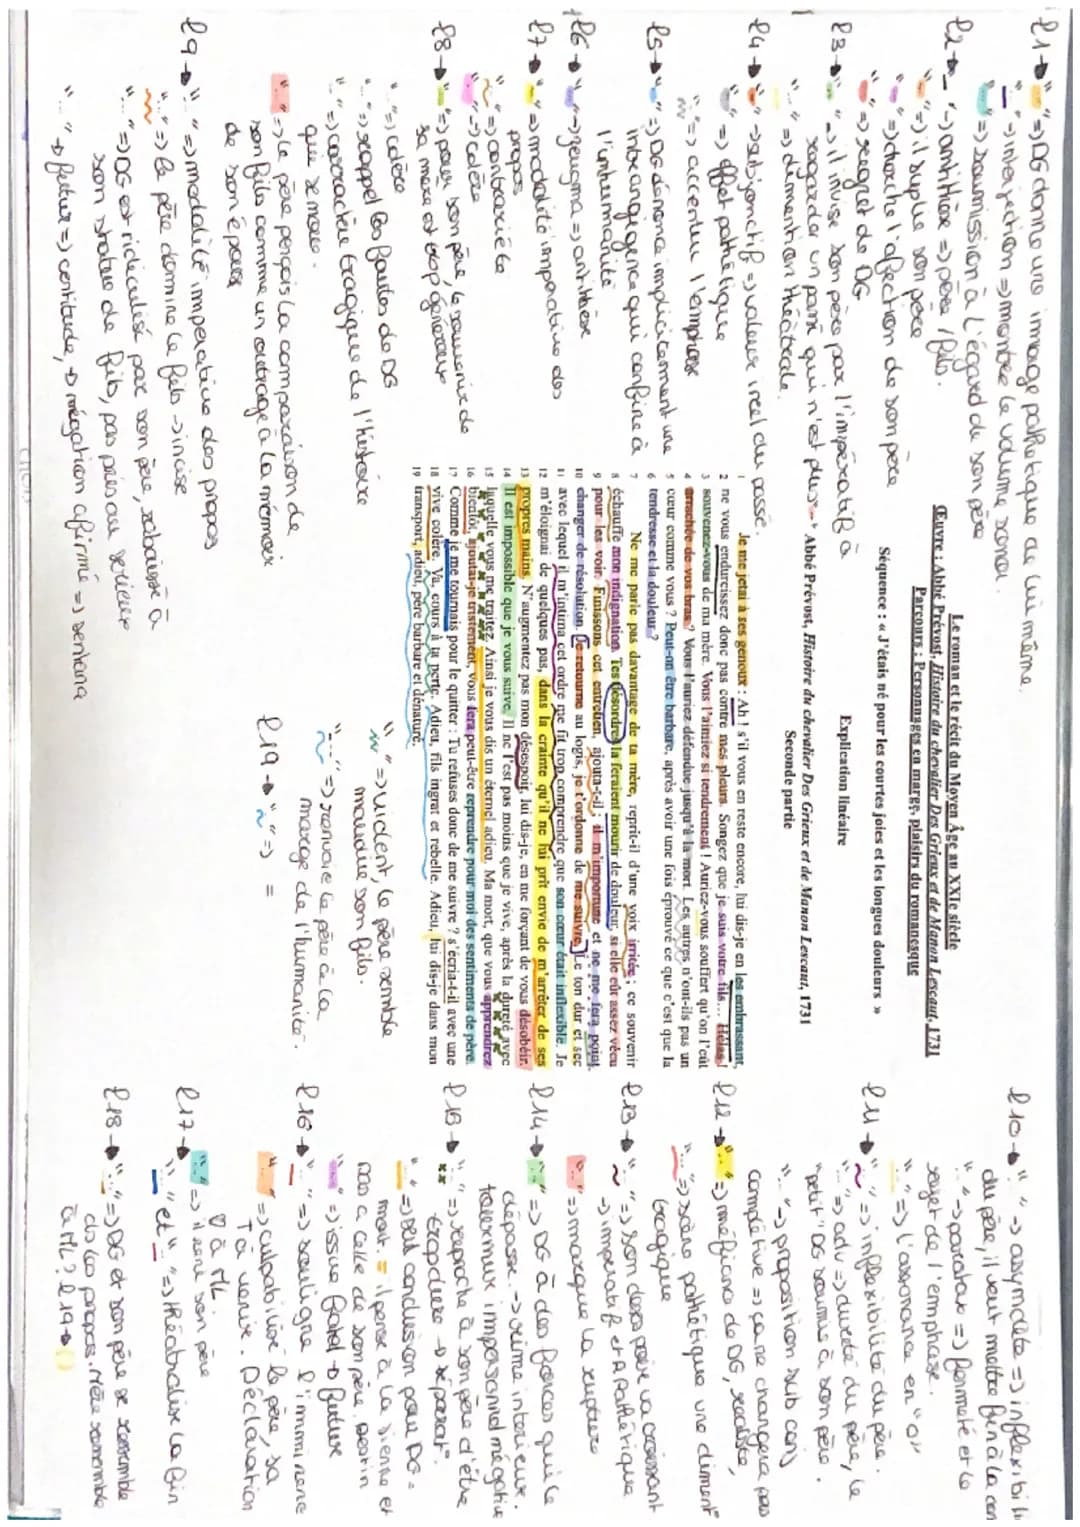 Le roman et le récit du Moyen Âge au XXIe siècle
Œuvre : Abbé Prévost, Histoire du chevalier Des Grieux et de Manon Lescaut, 1731
Parcours : Personnages en marge, plaisirs du romanesque
Séquence : « J'étais né pour les courtes joies et les longues douleurs »
Explication linéaire
Abbé Prévost, Histoire du chevalier Des Grieux et de Manon Lescaut, 1731
Seconde partie
1 Je me jetai à ses genoux : Ah ! s'il vous en reste encore, lui dis-je en les embrassant,
2 ne vous endurcissez donc pas contre mes pleurs. Songez que je suis votre fils... Hélas !
3 souvenez-vous de ma mère. Vous l'aimiez si tendrement ! Auriez-vous souffert qu'on l'eût
4 arrachée de vos bras ? Vous l'auriez défendue jusqu'à la mort. Les autres n'ont-ils pas un
5 cœur comme vous ? Peut-on être barbare, après avoir une fois éprouvé ce que c'est que la
6 tendresse et la douleur ?
7 Ne me parle pas davantage de ta mère, reprit-il d'une voix irritée ; ce souvenir
8 échauffe mon indignation. Tes désordres la feraient mourir de douleur, si elle eût assez vécu
9 pour les voir. Finissons cet entretien, ajouta-t-il ; il m'importune et ne me fera point
10 changer de résolution. Je retourne au logis, je t'ordonne de me suivre. Le ton dur et sec
11 avec lequel il m'intima cet ordre me fit trop comprendre que son cœur était inflexible. Je
12 m'éloignai de quelques pas, dans la crainte qu'il ne lui prît envie de m'arrêter de ses
13 propres mains. N'augmentez pas mon désespoir, lui dis-je, en me forçant de vous désobéir.
14 Il est impossible que je vous suive. Il ne l'est pas moins que je vive, après la dureté avec
15 laquelle vous me traitez. Ainsi je vous dis un éternel adieu. Ma mort, que vous apprendrez
16 bientôt, ajoutai-je tristement, vous fera peut-être reprendre pour moi des sentiments de père.
17 Comme je me tournais pour le quitter : Tu refuses donc de me suivre ? s'écria-t-il avec une
18 vive colère. Va, cours à ta perte. Adieu, fils ingrat et rebelle. Adieu, lui dis-je dans mon
19 transport, adieu, père barbare et dénaturé.
l1→ "..." => DG donne une image pathétique de lui même.
"..." -> interjection => montre le volume sonor
"..." => soumission à l'égard de son père
l2→ "..." -> antithèse => père / fils.
"..." => il suplie son père
"..." => touche l'afection de son père
"..." => regret de DG
l3→ "..." -> il invise son père par l'impératif à
regarder un passé qui n'est plus
"..." => dimention théâtrale.
l4→ "..." -> subjonctif => valeur irréel du passé.
"..." => effet pathétique
"..." => accentue l'emphase
l5→ "..." => DG dénonce implicitement une
intransigence qui confine à
l'inhumanité
l6→ "..." -> zeugma => antithèse
l7→ "..." => modalité impérative des
propos
"..." => contrariété
"..." -> colère
l8→ "..." => pour son père, le souvenir de
sa mère est trop généreux
"..." => colère
"..." => rappel les fautes de DG
"..." => caractère tragique de l'histoire
que se moque.
"..." -> le père perçois la comparaison de
son fils comme un outrage à la mémoire
de son épouse
l9→ "..." => modalité impérative des propos
"..." => le père domine le fils -> incise
"..." => DG est ridiculisé par son père, rabaissé à
son statut de fils, pas pris au sérieux
"..." → futur => certitude, → négation affirmé => sentana
l10→ "..." -> asymdète => inflexibili
du père, il veut mettre fin à la con
"..." -> parataxe => fermeté et le
sujet de l'emphase.
"..." => l'assonance en "o"
l11→ "..." => inflexibilité du père.
"..." => adv => dureté du père, le
"petit" DG soumis à son père.
"..." -> proposition sub conj
complétive => ça ne changera pas
l12→ "..." => méfiance de DG, réaliste,
"..." => scène pathétique une diment°
tragique
l13→ "..." => son désespoir va croissant
-> impératif et A pathétique
"..." => marque la rupture
l14→ "..." => DG a des forces qui le
dépasse. -> rime intérieure.
tournure impersonnel négative
l15→ "..." => reproche à son père d'être
trop dur → séparat°
"..." => seul conclusion pour DG =
mort. = il pense à la sienne et
pas à celle de son père. Destin
"..." => issue fatal → future
l16→ "..." => souligne l'imminence
"..." => culpabilise le père, sa
T à venir. Déclaration
à ML.
l17→ "..." => il reni son père
"..." et "..." => théâtralise la fin
l18→ "..." => DG et son père se ressemble
ds les propos. Mère ressemble
à ML ? l19→
"..." => vident, le père semble
maudire son fils.
"..." => renvoie le père à la
marge de l'humanité.
l19→ "..." => =